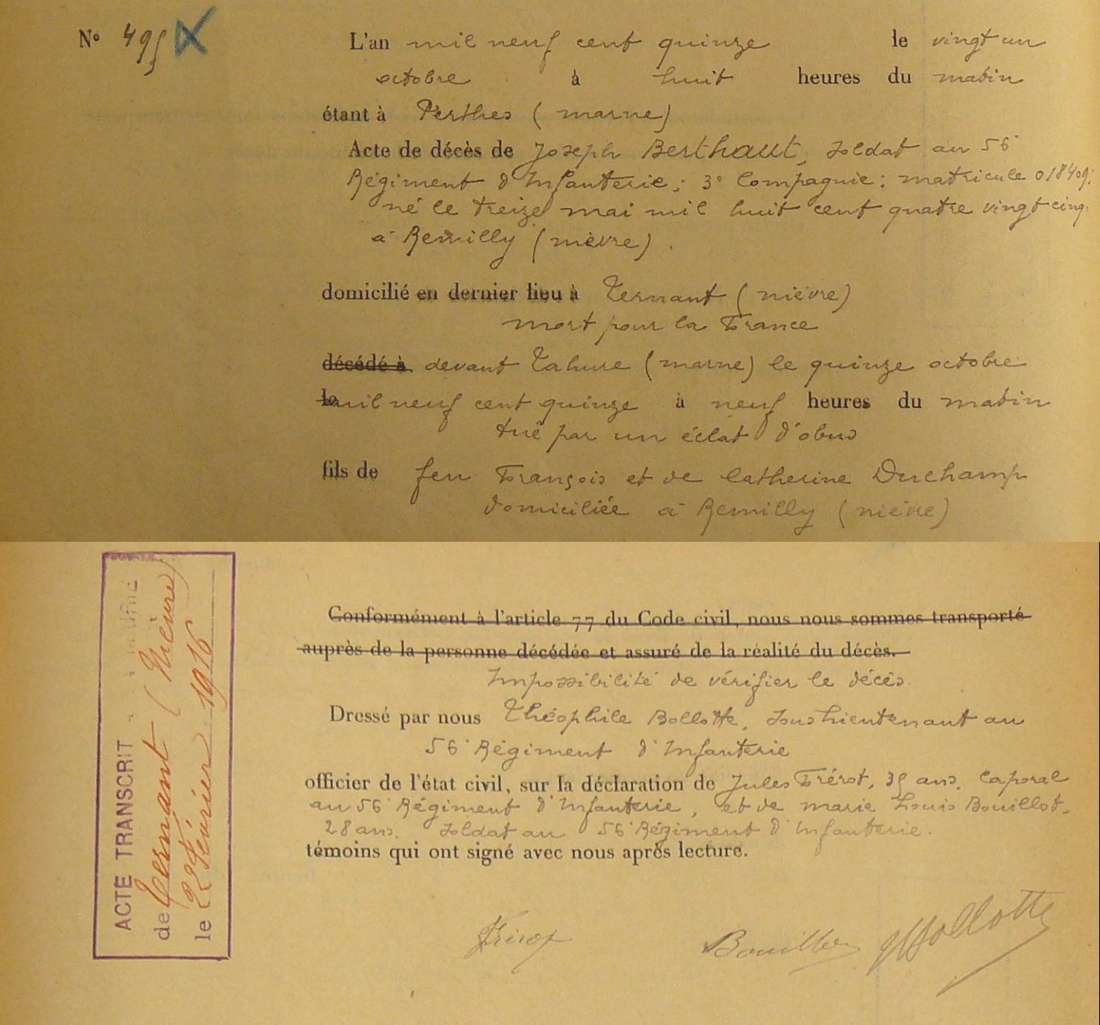 N° 495
L'an mil neuf cent quinze le vingt un
octobre à huit heures du matin
étant à Perthes (marne)
Acte de décès de Joseph Berthaut, soldat au 56e
Régiment d'Infanterie; 3e Compagnie; matricule 018409;
né le treize mai mil huit cent quatre vingt cinq
à Remilly (nièvre).
domicilié en dernier lieu à Ternant (nièvre)
mort pour la France
décédé à devant Tahure (marne) le quinze octobre
le mil neuf cent quinze à neuf heures du matin
tué par un éclat d'obus
fils de feu François et de Catherine Duchamp
domiciliée à Remilly (nièvre)
Conformément à l'article 77 du Code civil, nous nous sommes transporté
auprès de la personne décédée et assuré de la réalité du décès.
Impossibilité de vérifier le décès.
Dressé par nous Théophile Bollotte, Sous-lieutenant au
56e Régiment d'Infanterie
officier de l'état civil, sur la déclaration de Jules Frérot, 35 ans, Caporal
au 56e Régiment d'Infanterie, et de marie Louis Bouillot,
28 ans. Soldat au 56e Régiment d'Infanterie.
témoins qui ont signé avec nous après lecture.
Frérot Bouillot Bollotte
ACTE TRANSCRIT
de Ternant (Nièvre)
le 22 Février 1916